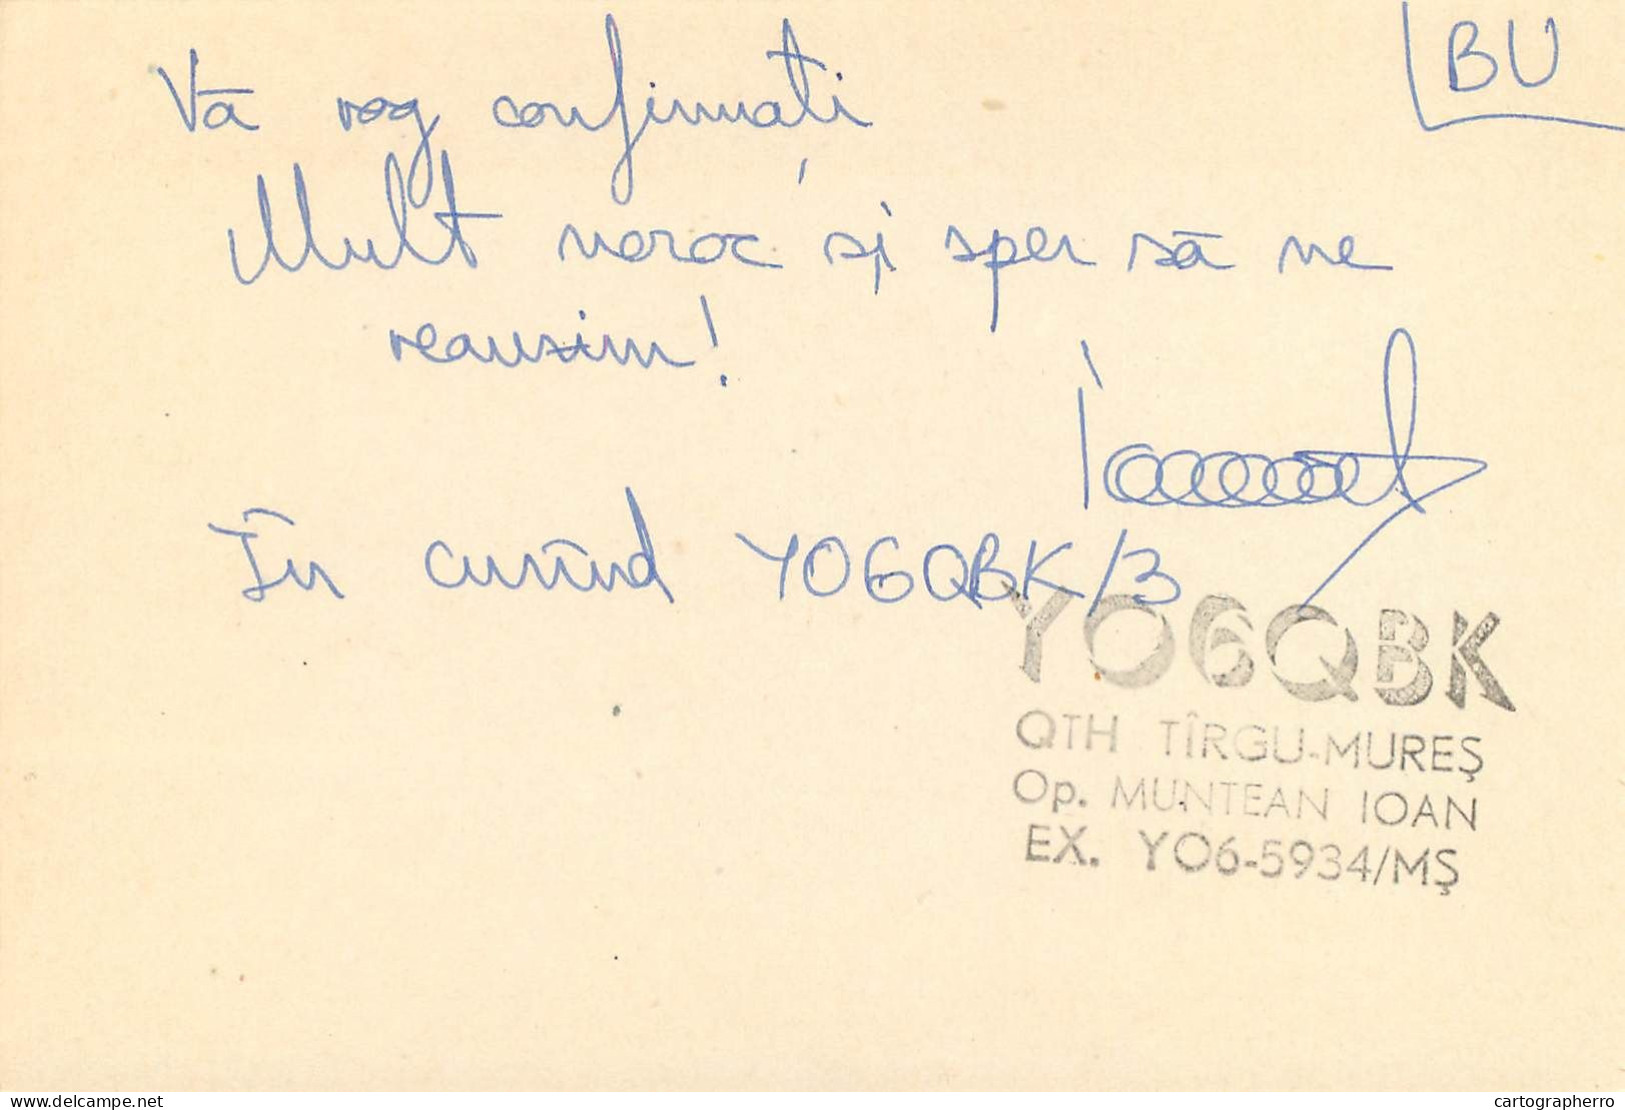 BU
Vă rog confirmați
Mult noroc și sper să ne
reauzim!
În curînd YO6QBK/3
YO6QBK
QTH TÎRGU-MUREȘ
Op. MUNTEAN IOAN
EX. YO6-5934/MȘ
delcampe.net
cartographerro